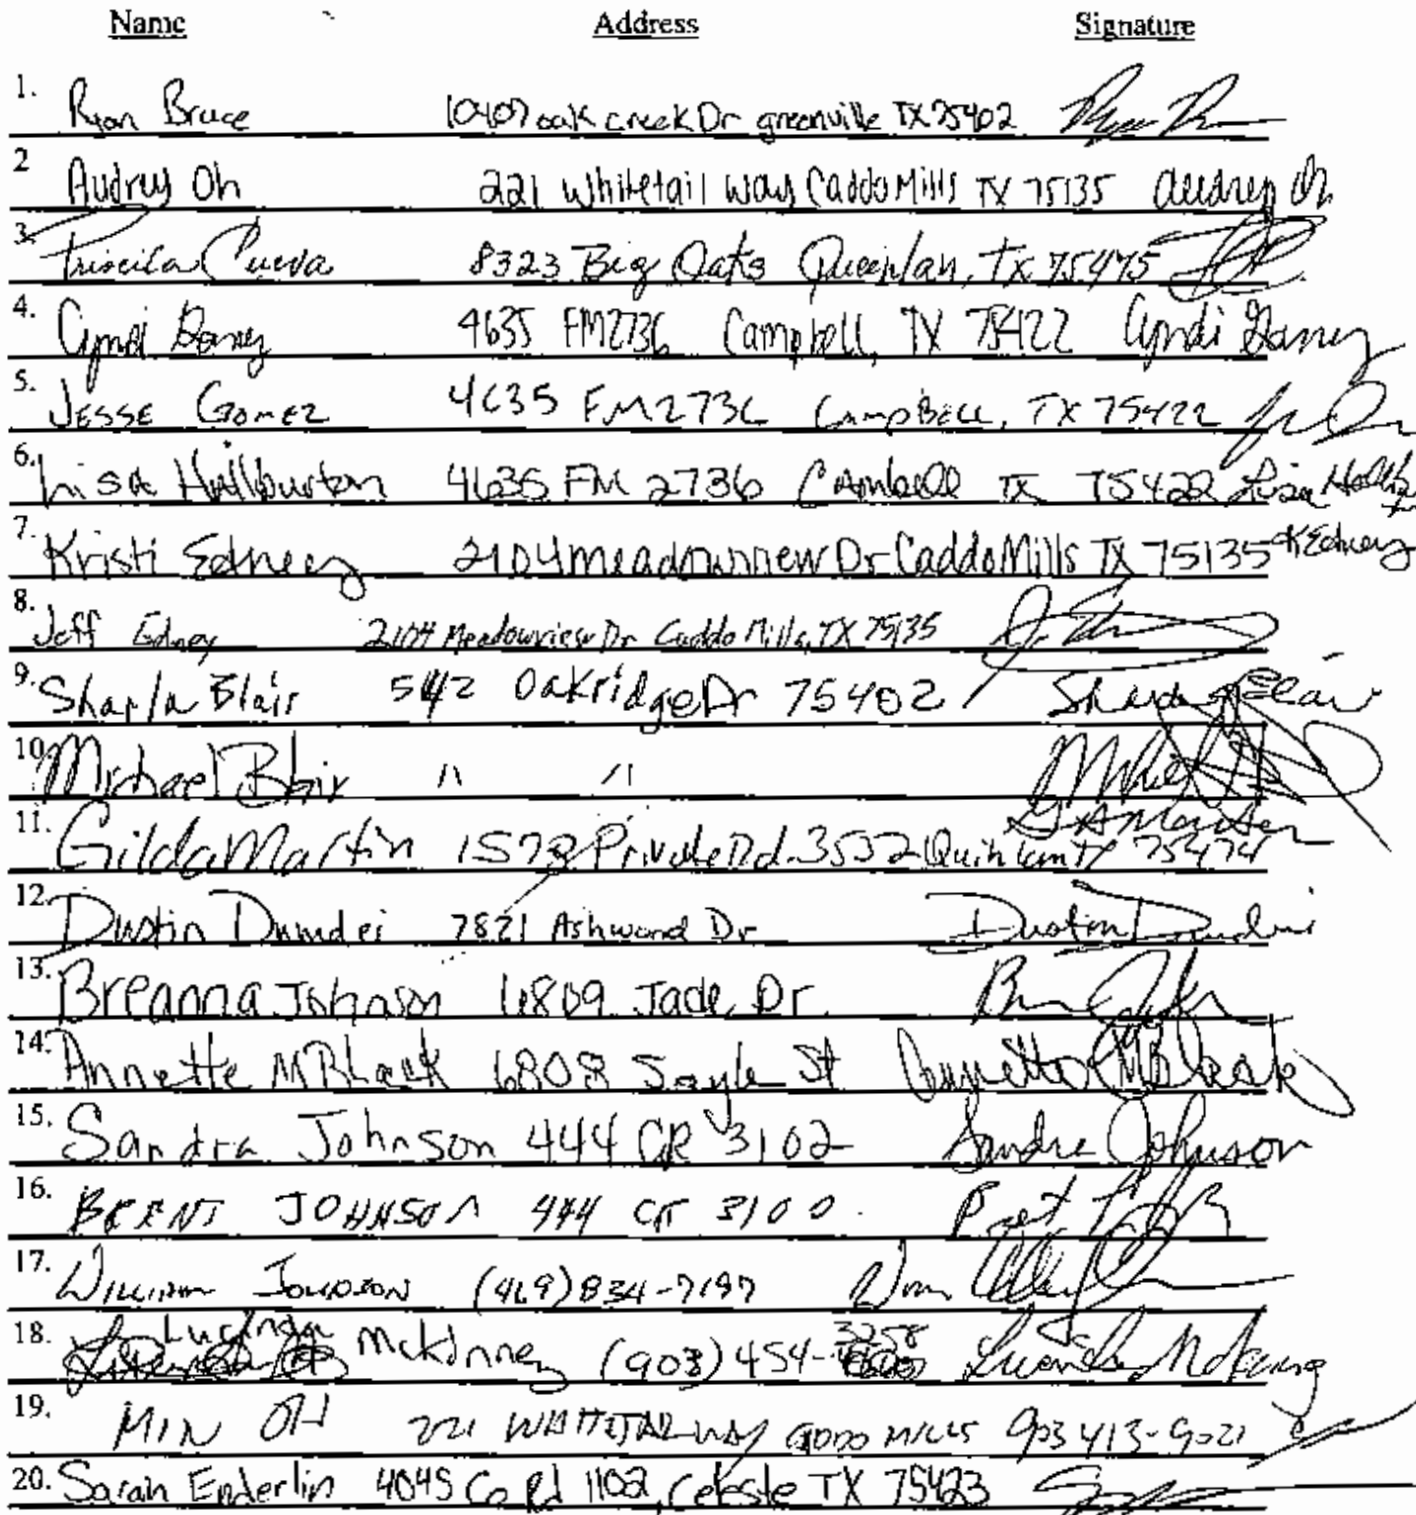 Name Address Signature
1. Ryan Bruce 10407 oak creek Dr greenville TX 75402
2 Audrey Oh 221 Whitetail Way Caddo Mills TX 75135 Audrey Oh
3. Priscila Cueva 8323 Big Oaks Queenlan, TX 75475
4. Cyndi 4635 FM2736 Campbell, TX 75422 Cyndi
5. JESSE GOMEZ 4635 FM2736 CAMPBELL, TX 75422
6. Lisa Halliburton 4635 FM 2736 Cambell TX 75422 Lisa
7. Kristi Edney 2104 Meadowview Dr Caddo Mills TX 75135 KEdney
8. Jeff Edney 2104 Meadowview Dr Caddo Mills, TX 75135
9. Sharla Blair 542 Oakridge Dr 75402 Blair
10. Michael Blair " "
11. Gilda Martin Private Rd. 3532 Quinlan TX 75474
12. Dustin 7821 Ashwood Dr Dustin
13. Breanna Johnson 6809 Jade Dr.
14. Annette M Black 6808 Sayle St Annette M Black
15. Sandra Johnson 444 CR 3102 Sandra Johnson
16. BRENT JOHNSON 444 CR 3100
17. WILLIAM JOHNSON (469) 834-7197
18. Lucinda McKinney (903) 454-3258 Lucinda McKinney
19. MIN OH 221 WHITETAIL WAY CADDO MILLS 903 413-9021
20. Sarah Enderlin 4045 Co Rd 1102, Celeste TX 75423